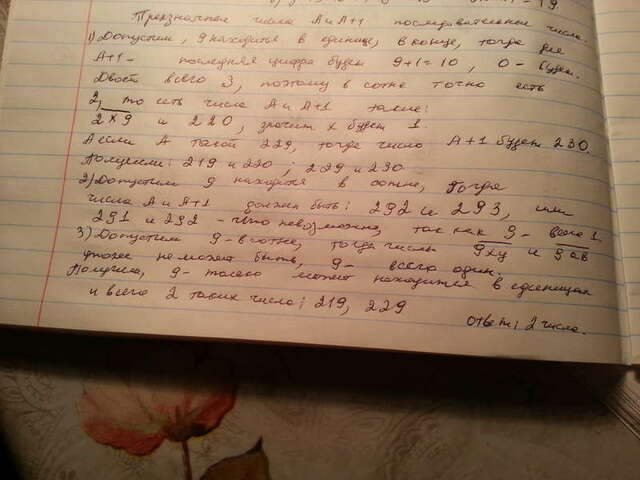 Трехзначные числа А и А+1 последовательные числа.
1) Допустим, 9 находится в единице, в конце, тогда для
А+1 - последняя цифра будет 9+1=10, 0 - будет.
Двоек всего 3, поэтому в сотне точно есть
2, то есть числа А и А+1 такие:
2х9 и 220, значит х будет 1.
А если А такой 229, тогда число А+1 будет 230.
Получили: 219 и 220; 229 и 230
2) Допустим 9 находится в сотне, тогда
числа А и А+1 должен быть: 292 и 293, или
291 и 292 - что невозможно, так как 9 - всего 1.
3) Допустим 9 - в сотне, тогда числы 9ху и 9ав
тоже не может быть, 9 - всего один.
Получили, 9 - только может находится в единицах
и всего 2 таких числа: 219, 229
Ответ: 2 числа.